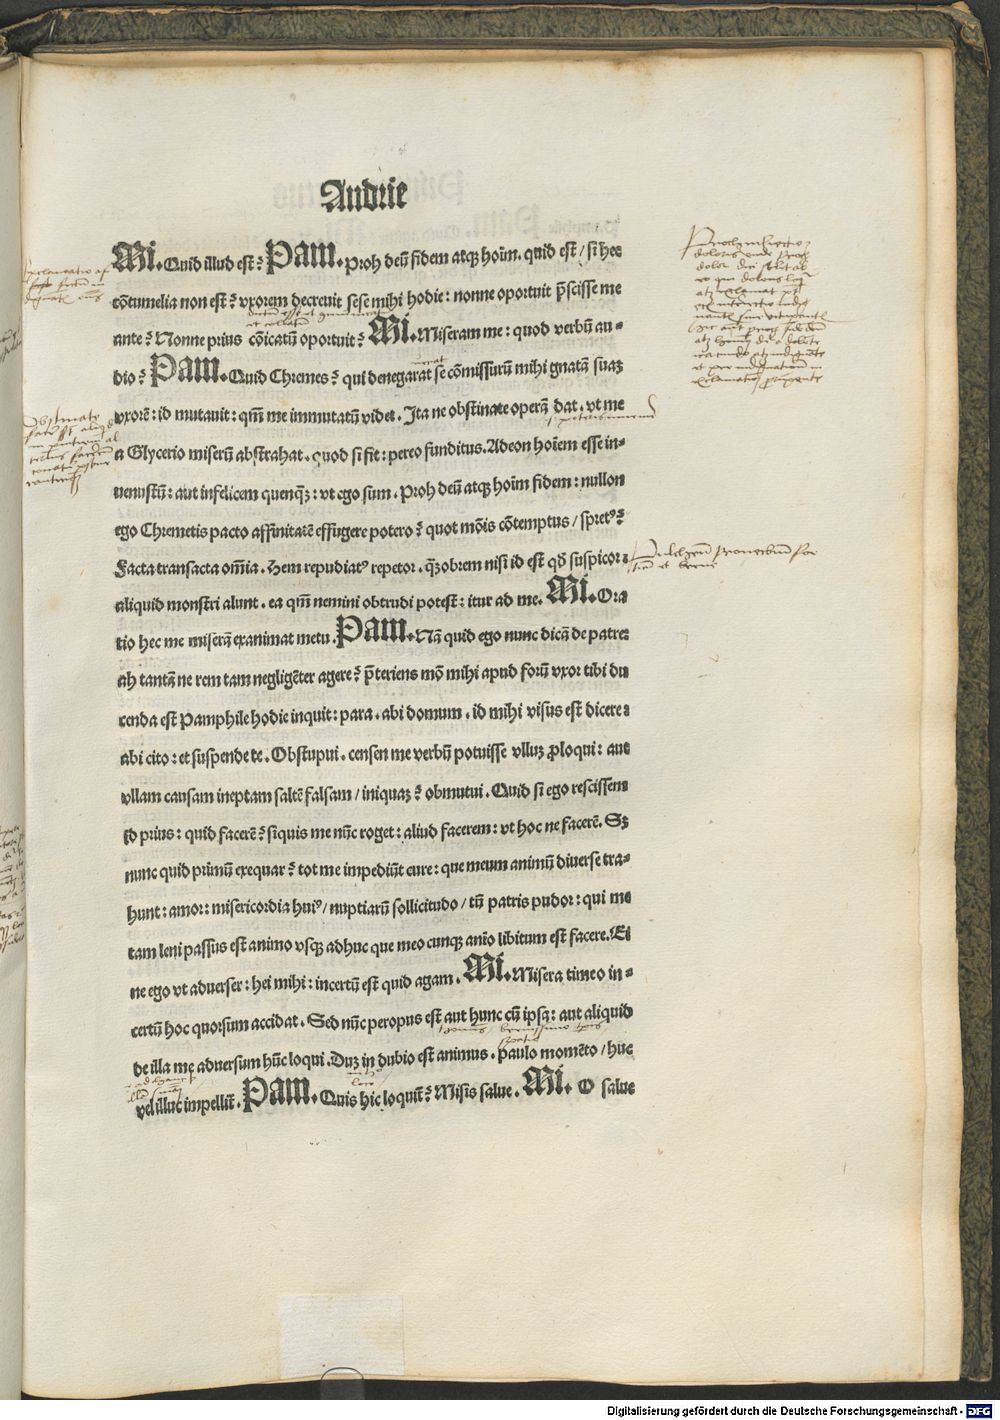 Andrie
Mi. Quid illud est? Pam. Proh deū fidem atqʒ hoīm. quid est/ si hec
cōtumelia non est? vxorem decreuit sese mihi hodie: nonne oportuit p̄scisse me
ante? Nonne prius cōicatū oportuit? Mi. Miseram me: quod verbū au-
dio? Pam. Quid Chremes? qui denegarat se cōmissurū mihi gnatā suaʒ
vxorē: id mutauit: qm̄ me immutatū videt. Ita ne obstinate operā dat. vt me
a Glycerio miserū abstrahat. quod si fit: pereo funditus. Adeon hoīem esse in-
uenustū: aut infelicem quenqʒ: vt ego sum. Proh deū atqʒ hoīm fidem: nullon
ego Chremetis pacto affinitatē effugere potero? quot mōis cōtemptus/ spretꝰ?
Facta transacta om̄ia. Hem repudiatꝰ repetor. qʒobrem nisi id est qḋ suspicor:
aliquid monstri alunt. ea qm̄ nemini obtrudi potest: itur ad me. Mi. Ora
tio hec me miserā exanimat metu. Pam. Nā quid ego nunc dicā de patre:
ah tantā ne rem tam negligēter agere? p̄teriens mō mihi apud forū vxor tibi du
cenda est Pamphile hodie inquit: para. abi domum. id mihi visus est dicere:
abi cito: et suspende te. Obstupui. censen me verbū potuisse vlluʒ ꝓloqui: aut
vllam causam ineptam saltē falsam/ iniquaʒ? obmutui. Quid si ego rescissem
id prius: quid facerē? siquis me nūc roget: aliud facerem: vt hoc ne facerē. Sʒ
nunc quid primū exequar? tot me impediūt cure: que meum animū diuerse tra-
hunt: amor: misericordia huiꝰ/ nuptiarū sollicitudo/ tū patris pudor: qui me
tam leni passus est animo vsqʒ adhuc que meo cunqʒ anīo libitum est facere. Ei
ne ego vt aduerser: hei mihi: incertū est quid agam. Mi. Misera timeo in-
certū hoc quorsum accidat. Sed nūc peropus est aut hunc cū ipsa: aut aliquid
de illa me aduersum hūc loqui. Duʒ in dubio est animus. paulo momēto/ huc
vel illuc impellit̄. Pam. Quis hic loquit̄? Misis salue. Mi. O salue
Digitalisierung gefördert durch die Deutsche Forschungsgemeinschaft - DFG